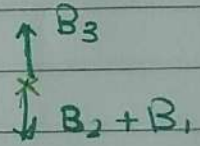 B₃
B₂ + B₁